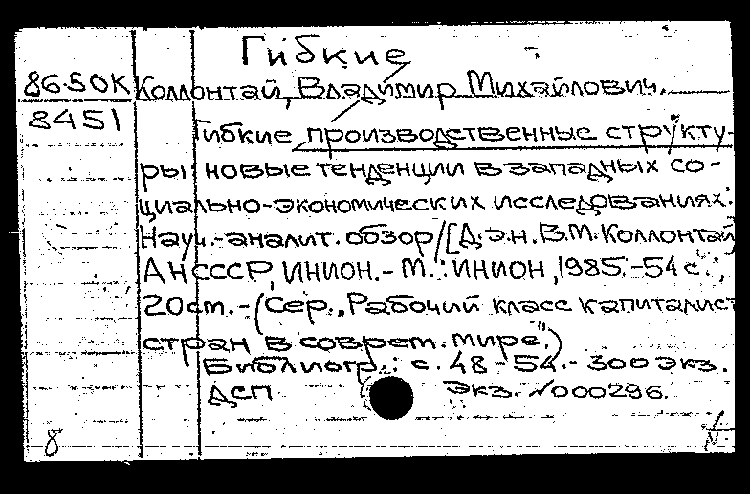 Гибкие
86-50К Коллонтай, Владимир Михайлович.
8451
Гибкие производственные структу-
ры: новые тенденции в западных со-
циально-экономических исследованиях:
Науч.-аналит. обзор/[Д.э.н. В.М. Коллонтай]
АН СССР, ИНИОН.- М.: ИНИОН, 1985.-54 с.;
20 ст.- (Сер. „Рабочий класс капиталист
стран в соврем. мире".)
Библиогр.: с. 48-54.- 300 экз.
ДСП Экз. №000296.
8